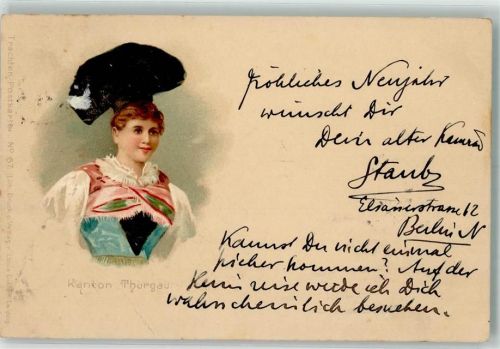 Fröhliches Neujahr
wünscht Dir
Dein alter Kamrad
Staub
Elsässerstrasse 62
Berlin N
Kannst Du nicht einmal
hicher kommen? Auf der
Heimreise werde ich Dich
wahrscheinlich besuchen.
Kanton Thurgau
Trachten-Postkarte No 67